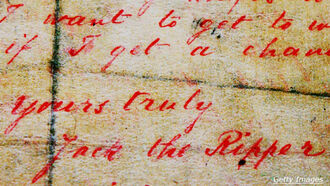 I want to get to w
if I get a chan
Yours truly
Jack the Ripper
Getty Images